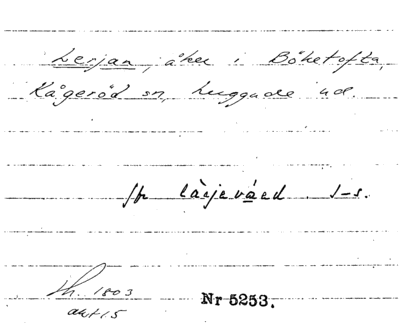 Lerjan, åker i Böketofta,
Kågeröd sn, Luggude hd.
låjevåed s-s.
1803
akt 15
Nr 5253.